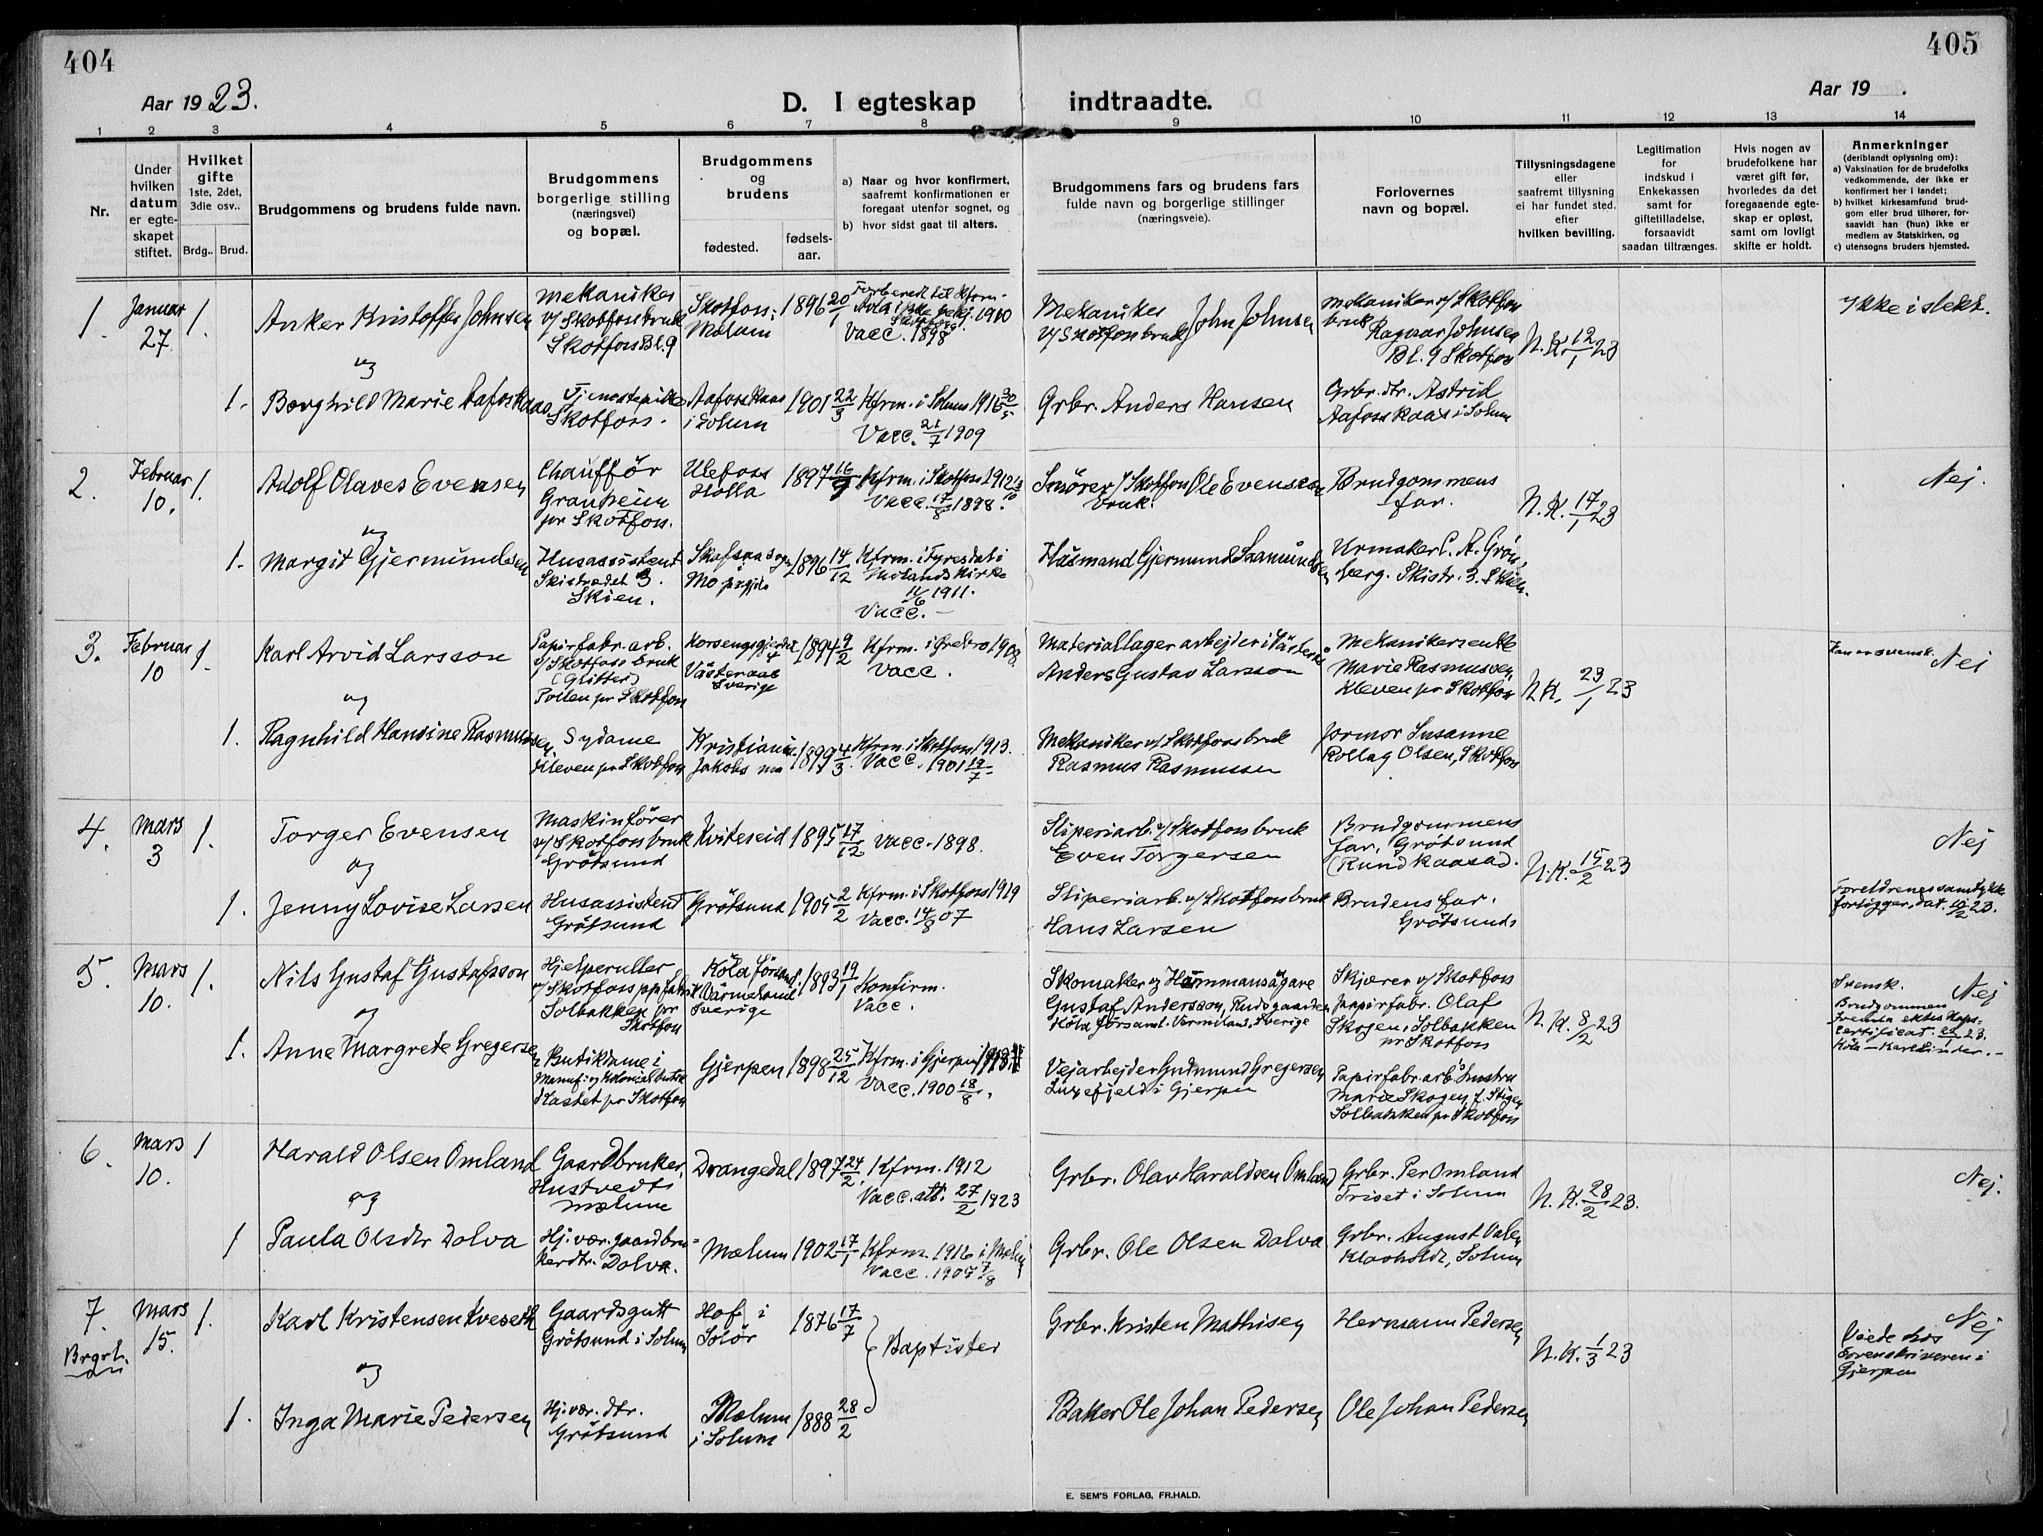 404
405
Aar 1923.
Aar 19 .
D. I egteskap indtraadte.
1 2 3 4 5 6 7 8 9 10 11 12 13 14
Nr.
Under hvilken datum er egteskapet stiftet.
Hvilket gifte
1ste, 2det, 3die osv..
Brdg.. Brud.
Brudgommens og brudens fulde navn.
Brudgommens borgerlige stilling (næringsvei) og bopæl.
Brudgommens og brudens
fødested.
fødselsaar.
a) Naar og hvor konfirmert, saafremt konfirmationen er foregaat utenfor sognet, og
b) hvor sidst gaat til alters.
Brudgommens fars og brudens fars fulde navn og borgerlige stillinger (næringsveie).
Forlovernes navn og bopæl.
Tillysningsdagene eller saafremt tillysning ei har fundet sted, efter hvilken bevilling.
Legitimation for indskud i Enkekassen samt for giftetilladelse, forsaavidt saadan tiltrænges.
Hvis nogen av brudefolkene har været gift før, hvorledes da det foregaaende egteskap er opløst, samt om lovligt skifte er holdt.
Anmerkninger
(deriblandt oplysning om):
a) Vaksination for de brudefolks vedkommende, der ikke er konfirmert her i landet;
b) hvilket kirkesamfund brudgom eller brud tilhører, forsaavidt han (hun) ikke er medlem av Statskirken, og
c) utensogns bruders hjemsted.
1. Januar 27. 1. Anker Kristoffer Johnsen
Mekaniker v/ Skotfoss bruk Skotfoss Bl. 9
Skotfoss i Mælum 1896 20/1
Vacc. 1898
Mekaniker v/ Skotfoss bruk John Johnsen
Mekaniker v/ Skotfoss bruk Ragnar Johnsen Bl. 9 Skotfoss
N.K. 12/1 23
Ikke i slekt.
og
1. Borghild Marie Aafoss Kaas
Tjenestepike Skotfoss.
Aafoss Kaas i Solum 1901 22/3
Kfrm. i Solum 1916 30/5
Vacc. 21/7 1909
Grbr. Anders Hansen
Grbr. dtr. Astrid Aafoss Kaas i Solum
2. Februar 10. 1. Adolf Olaves Evensen
Chauffør Granheim pr Skotfoss.
Ulefoss Holla 1897 16/9
Kfrm. i Skotfoss 1912
Vacc. 17/8 1898.
Smører v/ Skotfoss bruk. Ole Evensen
Brudgommens far.
N.K. 17/1 23
Nej.
og
1. Margit Gjermundsen
Husassistent Skistredet 3. Skien.
Mo prgjld 1896 14/12
Kfrm. i Fyresdal i Molands Kirke 1911.
Vacc. –
Husmand Gjermund Saamundsen
Urmaker C. A. Grønberg. Skistr. 3. Skien.
3. Februar 10 1. Karl Arvid Larsson
Papirfabr. arb. v/ Skotfoss bruk (Glitter) Polen pr Skotfoss
Västeraas Sverige 1894 9/2
Kfrm. i Ørebro 1908
Vacc.
Materiallagerarbejder i Västerås Anders Gustav Larsson
Mekanikerenke Marie Rasmussen, Kleven pr Skotfoss
N.K. 23/1 23
Han er svensk. Nei
og
1. Ragnhild Hansine Rasmussen.
Sydame Kleven pr Skotfoss
Kristiania Jakobs mn 1899 4/3
Kfrm. i Skotfoss 1913.
Vacc. 1901 19/7.
Mekaniker v/ Skotfoss bruk Rasmus Rasmussen
Formor Susanne Rollag Olsen, Skotfoss
4. Mars 3 1. Torger Evensen
Maskinfører v/ Skotfoss bruk Grøtsund
Kviteseid 1895 17/12 Vacc. 1898.
Sliperiarb. v/ Skotfoss bruk Even Torgersen
Brudgommens far, Grøtsund
N.K. 15/2 23
Nej
og
1. Jenny Lovise Larsen
Husassistent Grøtsund
Grøtsund 1905 2/2
Kfrm. i Skotfoss 1919
Vacc. 14/8 07
Sliperiarb. v/ Skotfoss bruk Hans Larsen
Brudens far. Grøtsund
Foreldrenes samtykke foreligger, dat. 10/2 23.
5. Mars 10. 1. Nils Gustaf Gustafsson
Hjelperuller v/ Skotfoss ppfabr. Solbakken pr Skotfoss
Köla församl. Värmeland Sverige 1893 19/1
Konfirm. Vacc.
Skomaker og Hemmansägare Gustaf Andersson, Rudsgaarden Köla församl. Vermland, Sverige
Skjærer v/ Skotfoss papirfabr. Olaf Skogen, Solbakken pr Skotfoss
N.K. 8/2 23
Svensk. Nej
og
1. Anne Margrete Gregersen
Butikdame i Manuf. og Kolonial butik pr Skotfoss
Gjerpen 1898 25/12
Kfrm. i Gjerpen 1913
Vacc. 1900 18/8.
Vejarbejder Gudmund Gregersen Luxefjeld i Gjerpen
Papirfabr. arb. hustru Marie Skogen, f. Stigen Solbakken pr Skotfoss
6. Mars 10. 1 Harald Olsen Omland
Gaardbruker, Hustvedt i Mælum
Drangedal 1897 24/2.
Kfrm. 1912
Vacc. att. 27/2 1923
Grbr. Olav Haraldsen Omland
Grbr. Per Omland Triset i Solum
N.K. 28/2 23.
Nej.
og
1 Paula Olsdtr Dolva
Hj. vær. gaardbrukerdtr. Dolva.
Mælum 1902 17/1
Kfrm. 1916 i Mælum
Vacc. 1907 7/8
Grbr. Ole Olsen Dolva
Grbr. August Valen Klovholdt, Solum
7. Brgrl. Mars 15. 1. Karl Kristensen Kveseth
Gaardsgutt Grøtsund i Solum
Hof i Solør 1876 17/7
Baptister
Grbr. Kristen Mathisen
Hermann Pedersen
N.K. 1/3 23
Nej
Viede hos Sorenskriveren i Gjerpen
og
1. Inga Marie Pedersen
Hj. vær. dtr. Grøtsund
Mælum i Solum 1888 28/2
Baker Ole Johan Pedersen
Ole Johan Pedersen
E. SEM'S FORLAG, FR.HALD.